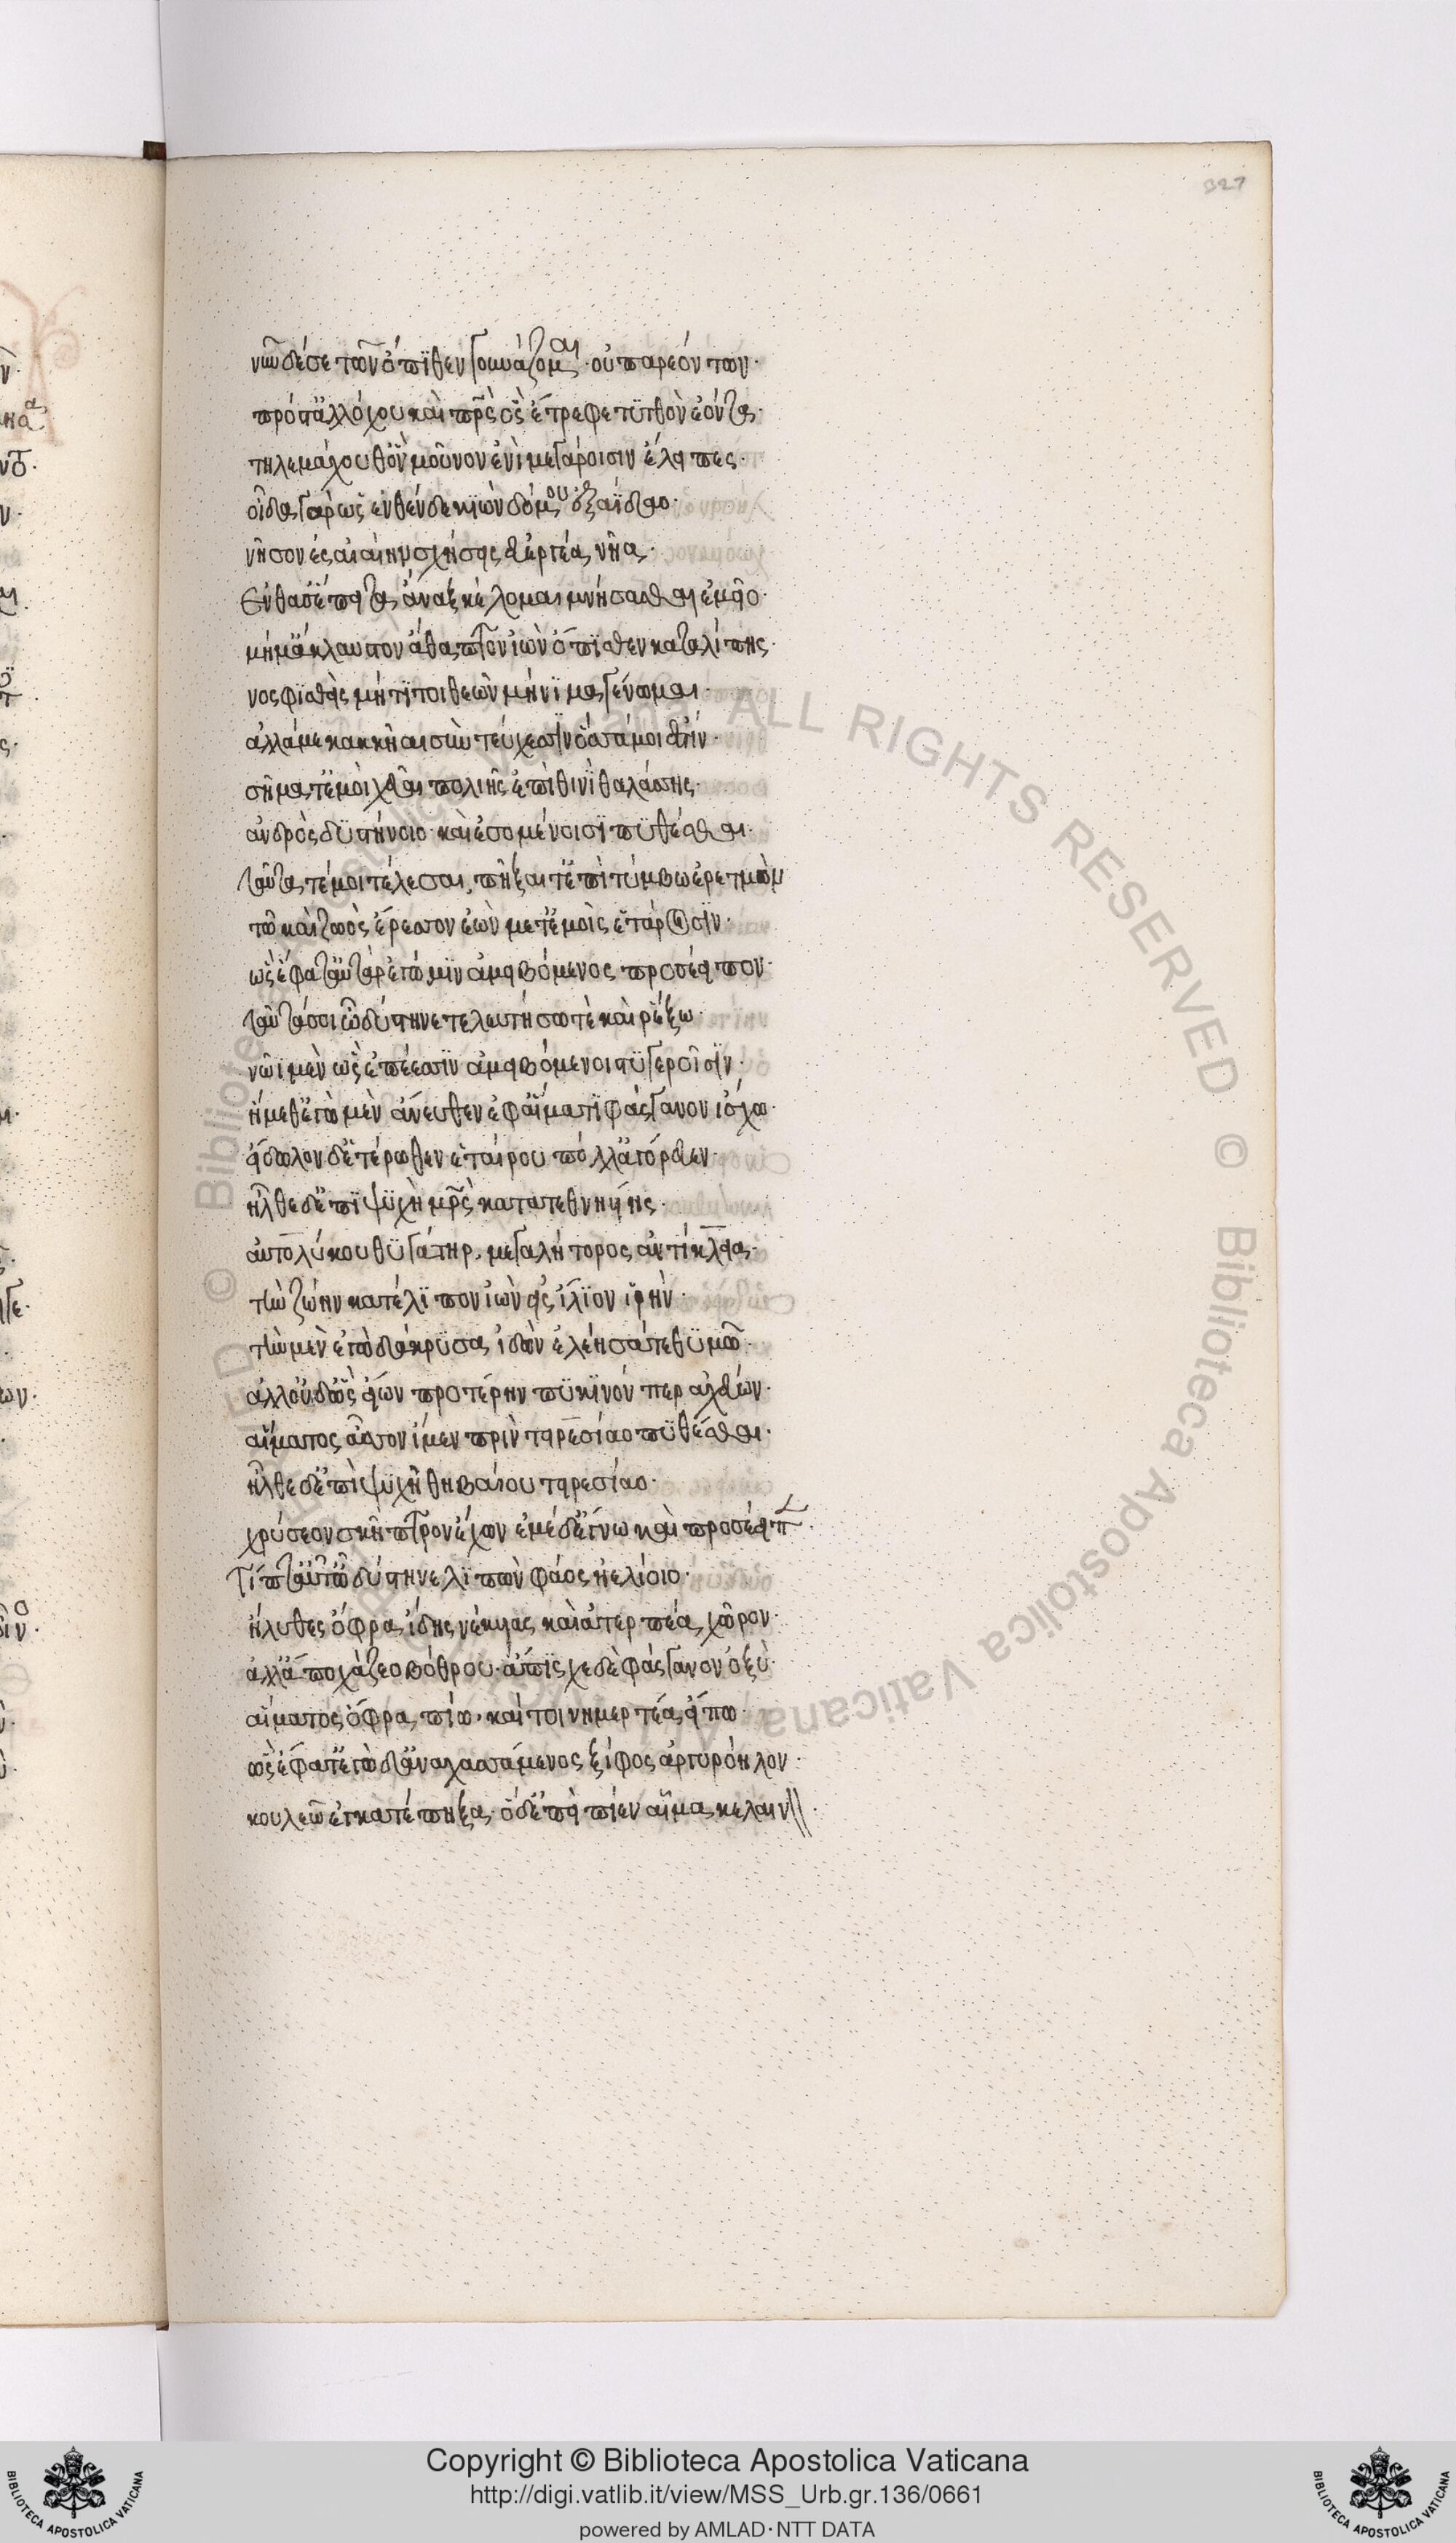 327
νῦν δέ σε τῶν ὄπϊθεν γουνάζομαι· οὐ παρεόντων·
πρός τ' ἀλλόχου καὶ πρς ὅς ἔτρεφε τϋτθὸν ἐόντα·
τηλεμάχου θ' ὃν μοῦνον ἐνὶ μεγάροισιν ἔλειπες·
οἶδα γὰρ ὡς ἐνθένδε κϊὼν δόμου ἐξ ἀΐδαο·
νῆσον ἐς αἰαίην σχήσεις εὐεργέα νῆα·
Ἔνθα σ' ἔπειτα ἄναξ κέλομαι μνήσασθαι ἐμεῖο·
μή μ' ἄκλαυτον ἄθαπτον ἰὼν ὄπϊθεν καταλίπης·
νοσφϊσθεὶς μή τΐ τοι θεῶν μήνϊμα γένωμαι·
ἀλλά με κακκῆαι σὺν τεύχεσϊν ὅσσα μοί ἐστίν·
σῆμα τ' ἐμοὶ χεῦαι πολιῆς ἐπὶ θινῒ θαλάσσης·
ἀνδρὸς δϋστήνοιο καὶ ἐσομένοισϊ πϋθέσθαι·
ταῦτα τέ μοι τέλεσαι, πῆξαι τ' ἐπὶ τύμβω ἐρετμὸν
τῶ καὶ ζωὸς ἔρεσσον ἐὼν μετ' ἐμοῖς ἑτάροισϊν·
ὣς ἔφατ' αὐτὰρ ἐγώ μϊν ἀμειβόμενος προσέειπον·
ταῦτά σοι ὦ δύστηνε τελευτήσω τὲ καὶ ρέξω·
νῶϊ μὲν ὣς ἐπέεσσϊν ἀμειβόμενοι στϋγεροῖσϊν·
ἥμεθ' ἐγὼ μὲν ἄνευθεν ἐφ' αἵματϊ φάσγανον ἴσχω·
εἴδωλον δ' ἑτέρωθεν ἑταίρου πόλλ' ἀγόρευεν·
ἦλθε δ' ἐπῒ ψϋχὴ μρς κατατεθνηείης·
αὐτολύκου θϋγάτηρ, μεγαλήτορος ἀντίκλεια·
τὴν ζώην κατέλϊπον ἰὼν εἰς ἴλϊον ἱρὴν·
τὴν μὲν ἐγὼ δάκρϋσα ἰδὼν ἐλέησά τε θϋμῶ·
ἀλλ' οὐδ' ὣς εἴων προτέρην πϋκϊνόν περ ἀχεύων·
αἵματος ἆσσον ἴμεν πρὶν τειρεσίαο πϋθέσθαι·
ἦλθε δ' ἐπὶ ψϋχὴ θηβαίου τειρεσίαο·
χρύσεον σκῆπτρον ἔχων ἐμέ δ' ἔγνω καὶ προσέειπε·
Τίπτ' αὖτ' ὦ δύστηνε λϊπὼν φάος ἠελίοιο·
ἤλυθες ὄφρα ἴδης νέκυας καὶ ἀτερπέα χῶρον·
ἀλλ' ἀποχάζεο βόθρου· ἄπϊσχε δὲ φάσγανον ὀξὺ·
αἵματος ὄφρα πίω· καί τοι νημερτέα εἴπω·
ὣς ἔφατ' ἐγὼ δ' ἀναχασσάμενος ξίφος ἀργυρόηλον·
κουλεῶ ἐγκατέπηξα, ὁ δ' ἐπεὶ πίεν αἷμα κελαιν·
Copyright © Biblioteca Apostolica Vaticana
http://digi.vatlib.it/view/MSS_Urb.gr.136/0661
powered by AMLAD·NTT DATA